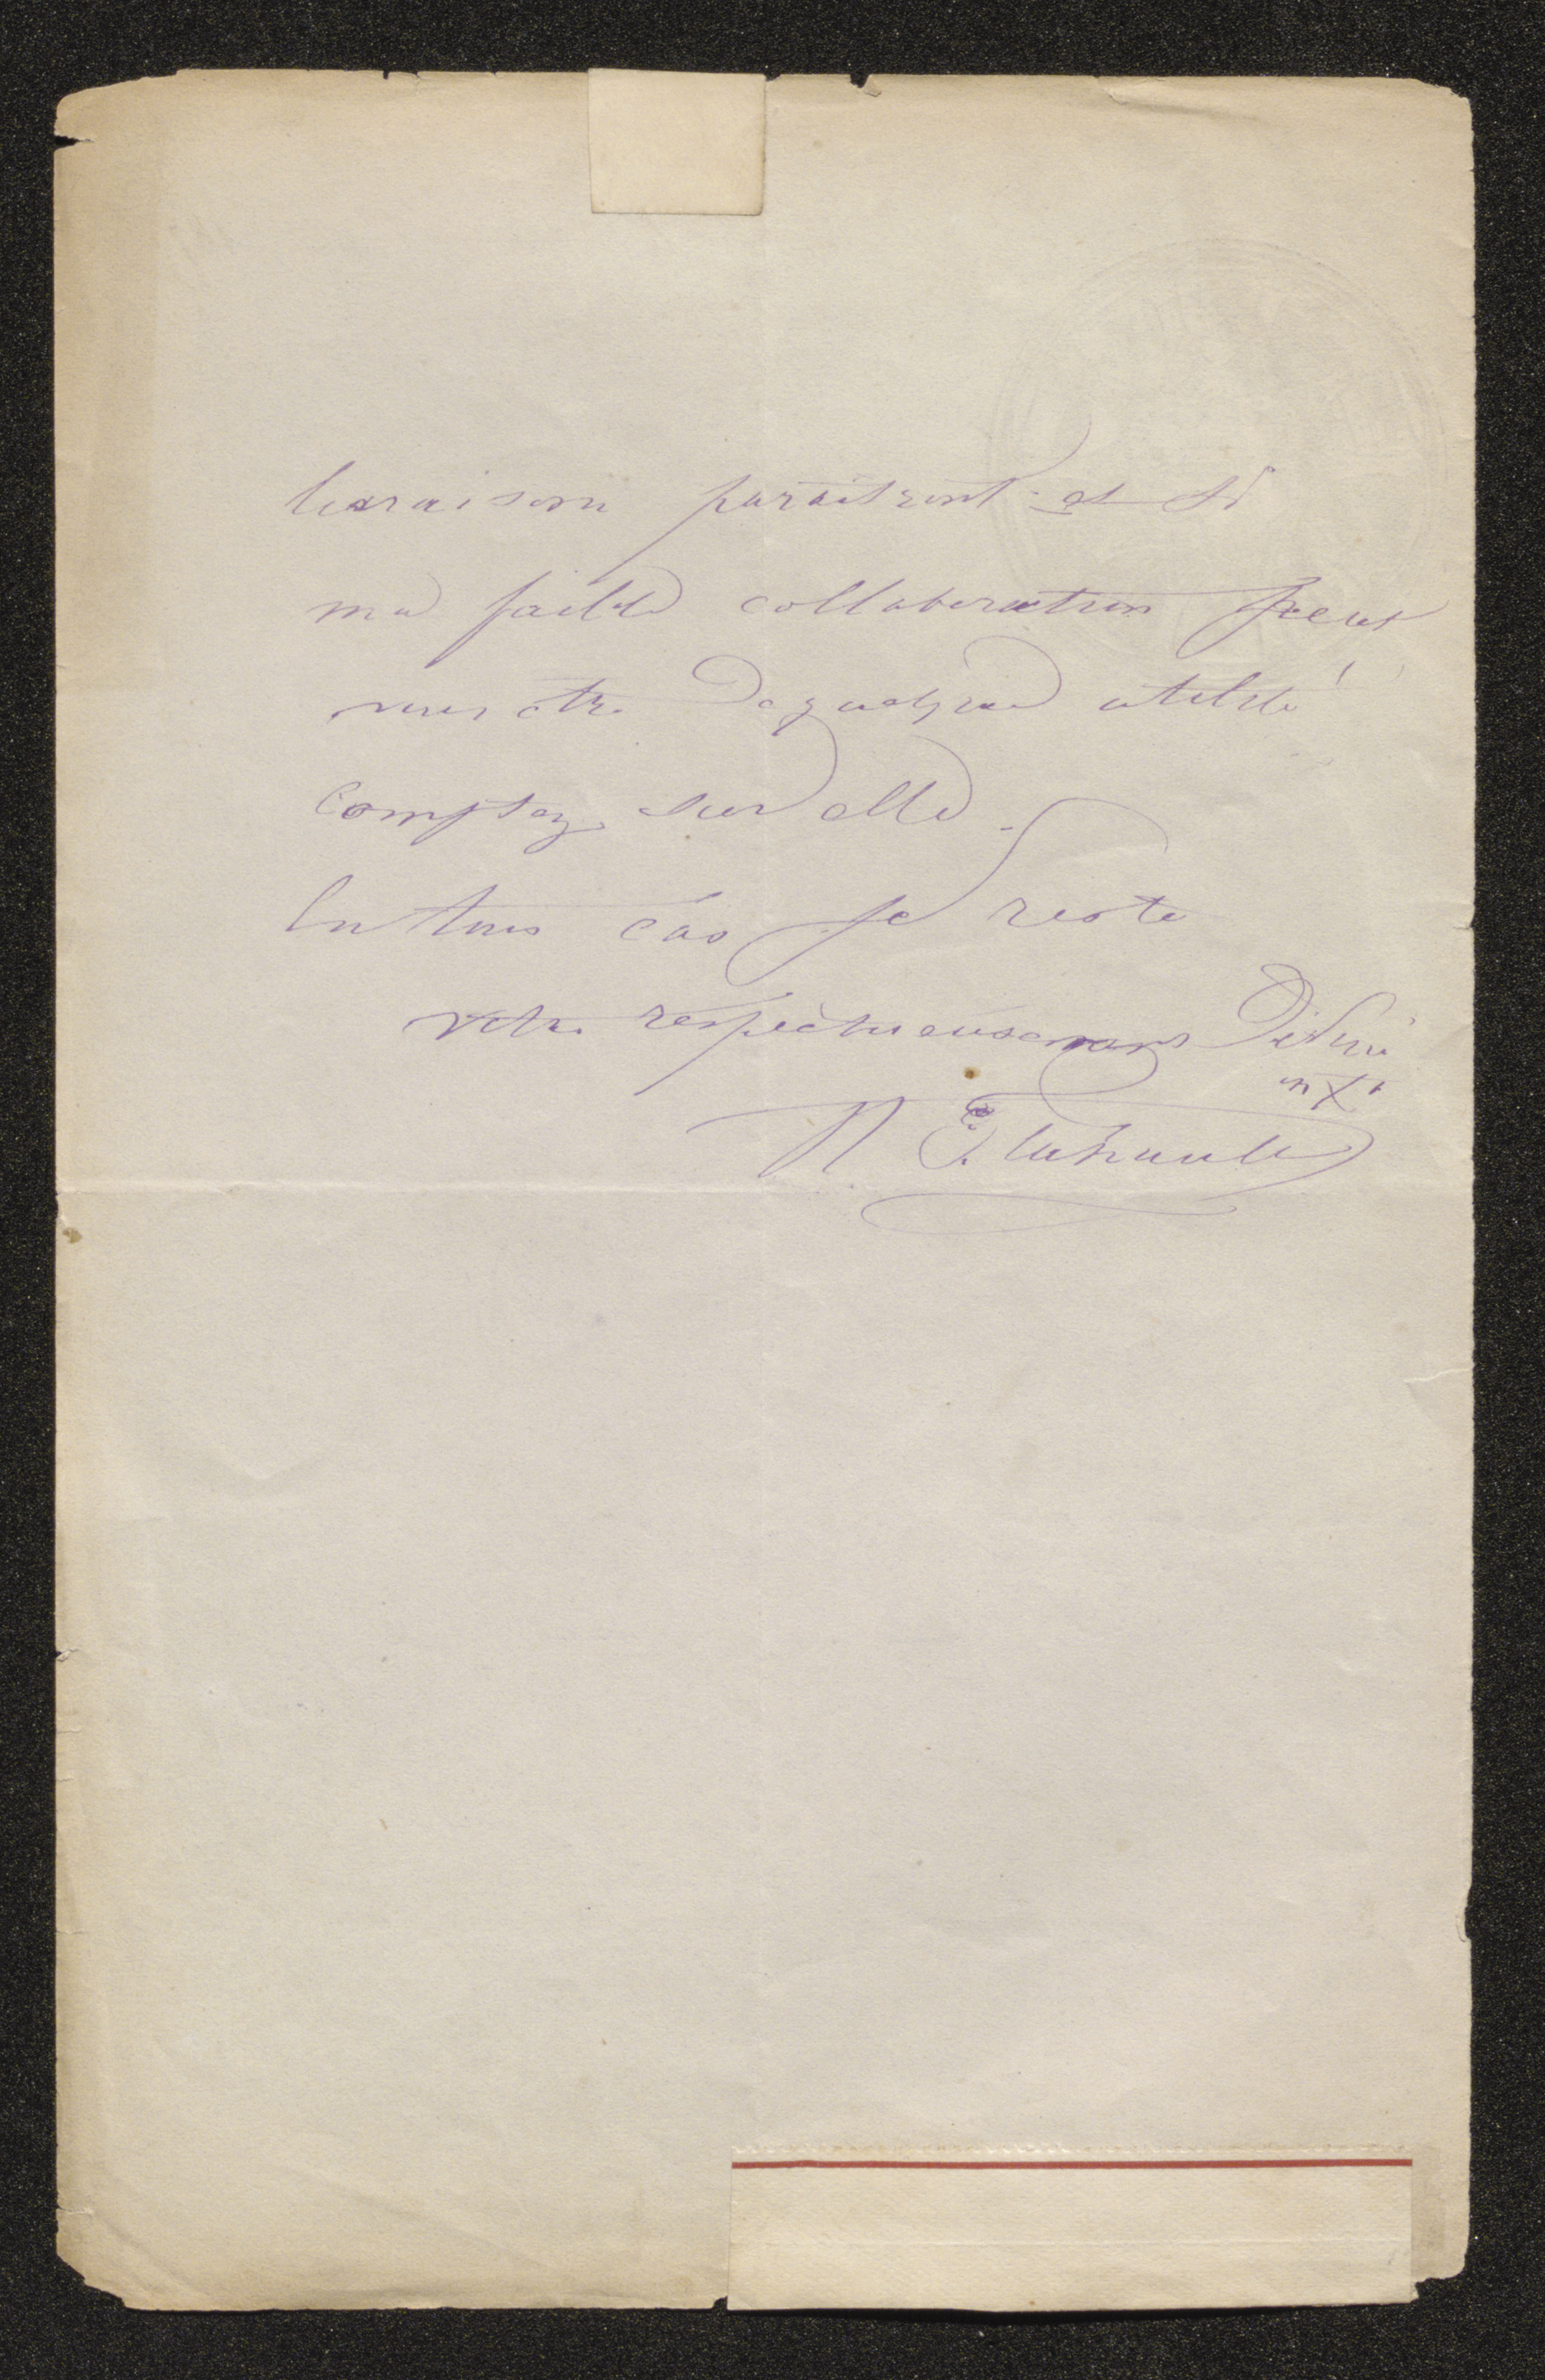 livraisons paraitront et si
ma faible collaboration peut
vous être de quelque utilité
comptez sur elle.
En tous cas je reste
votre respectueusement Dévoué
en Xt